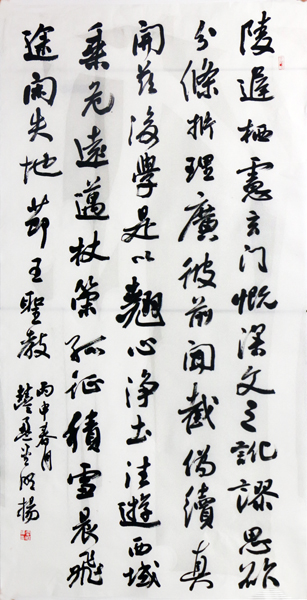 陵遲栖慮玄门慨深文之訛謬思欲
分條析理廣彼前聞截偽續真
開茲後學是以翹心淨土往遊西域
乘危遠邁杖策孤征積雪晨飛
途間失地節王聖教
丙申春月
揚